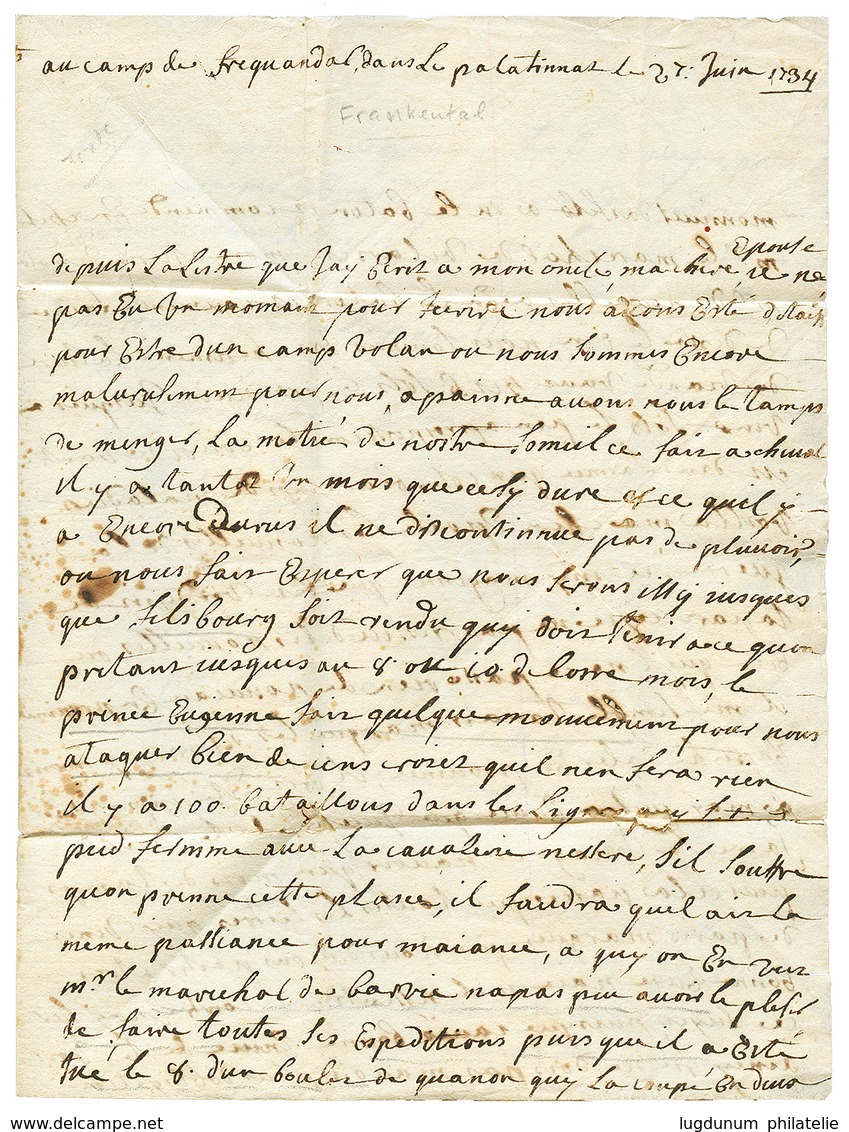 au camp de frequandal, dans Le palatinnat le 27. Juin 1734
Frankental
Epouse
depuis La Lestre que Jay Ecrit a mon oncle, ma chere, ie né
pas Eu Un momant pour tecrire nous avons Esté détach
pour Estre dun camp volan ou nous sommes Encore
maluruisement pour nous, a painne avons nous le tamps
de menger, La motié de nostre someil ce fait a cheval
il y a tantot Un mois que cesy dure & ce quil y
a Encore de rus il ne discontinue pas de pluvoir,
on nous fait Esperer que nous serons issy iusques
que filsbourg soit rendu quy doit tenir a ce quon
pretant iusques au 8. ou 10. de lotre mois, le
prince Eugenne fait quelque mouvement pour nous
ataquer bien de iens croiet quil nen fera rien
il y a 100. bataillons dans les Lignes quy
pied fermme avec La cavalerie nessere, sil souffre
quon prenne cette plasse, il faudra quil ait la
meme passiance pour maiance, a quy on En veut
mr. le marechal de barvic na pas pue avoir le plesir
de faire toutes ses Espeditions puis que il a Esté
tué le 8. d'un boulet de quanon quy La coupé En deux
lugdunum philatelie
www.delcampe.net